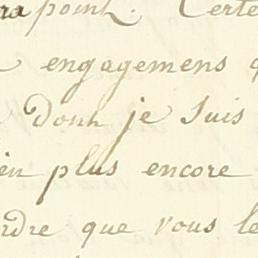 ra point. Certe
engagemens q
dont je suis
en plus encore
rdre que vous le